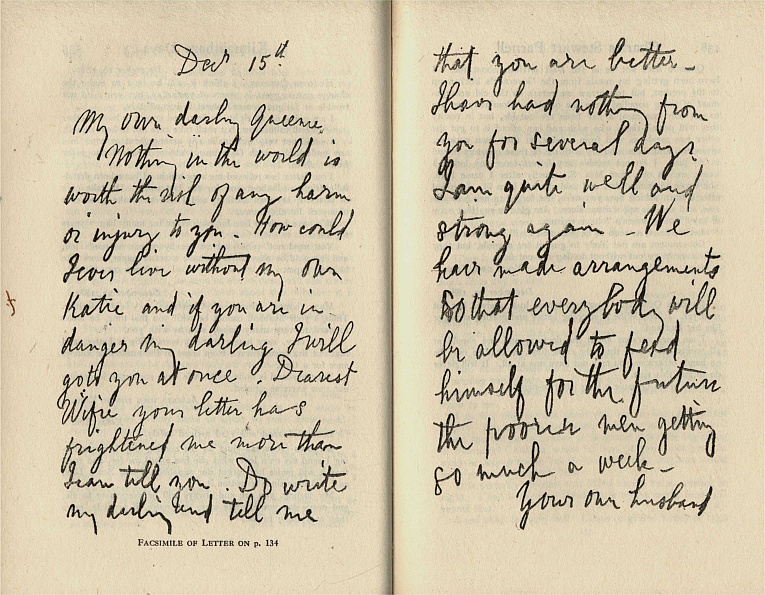 Dec 15th
My own darling Queenie,
Nothing in the world is
worth the risk of any harm
or injury to you. How could
I ever live without my own
Katie and if you are in
danger my darling I will
go to you at once. Dearest
Wifie your letter has
frightened me more than
I can tell you. Do write
my darling and tell me
FACSIMILE OF LETTER ON p. 134
that you are better -
I have had nothing from
you for several days.
I am quite well and
strong again - We
have made arrangements
so that everybody will
be allowed to feed
himself for the future
the poorer men getting
so much a week -
Your own husband